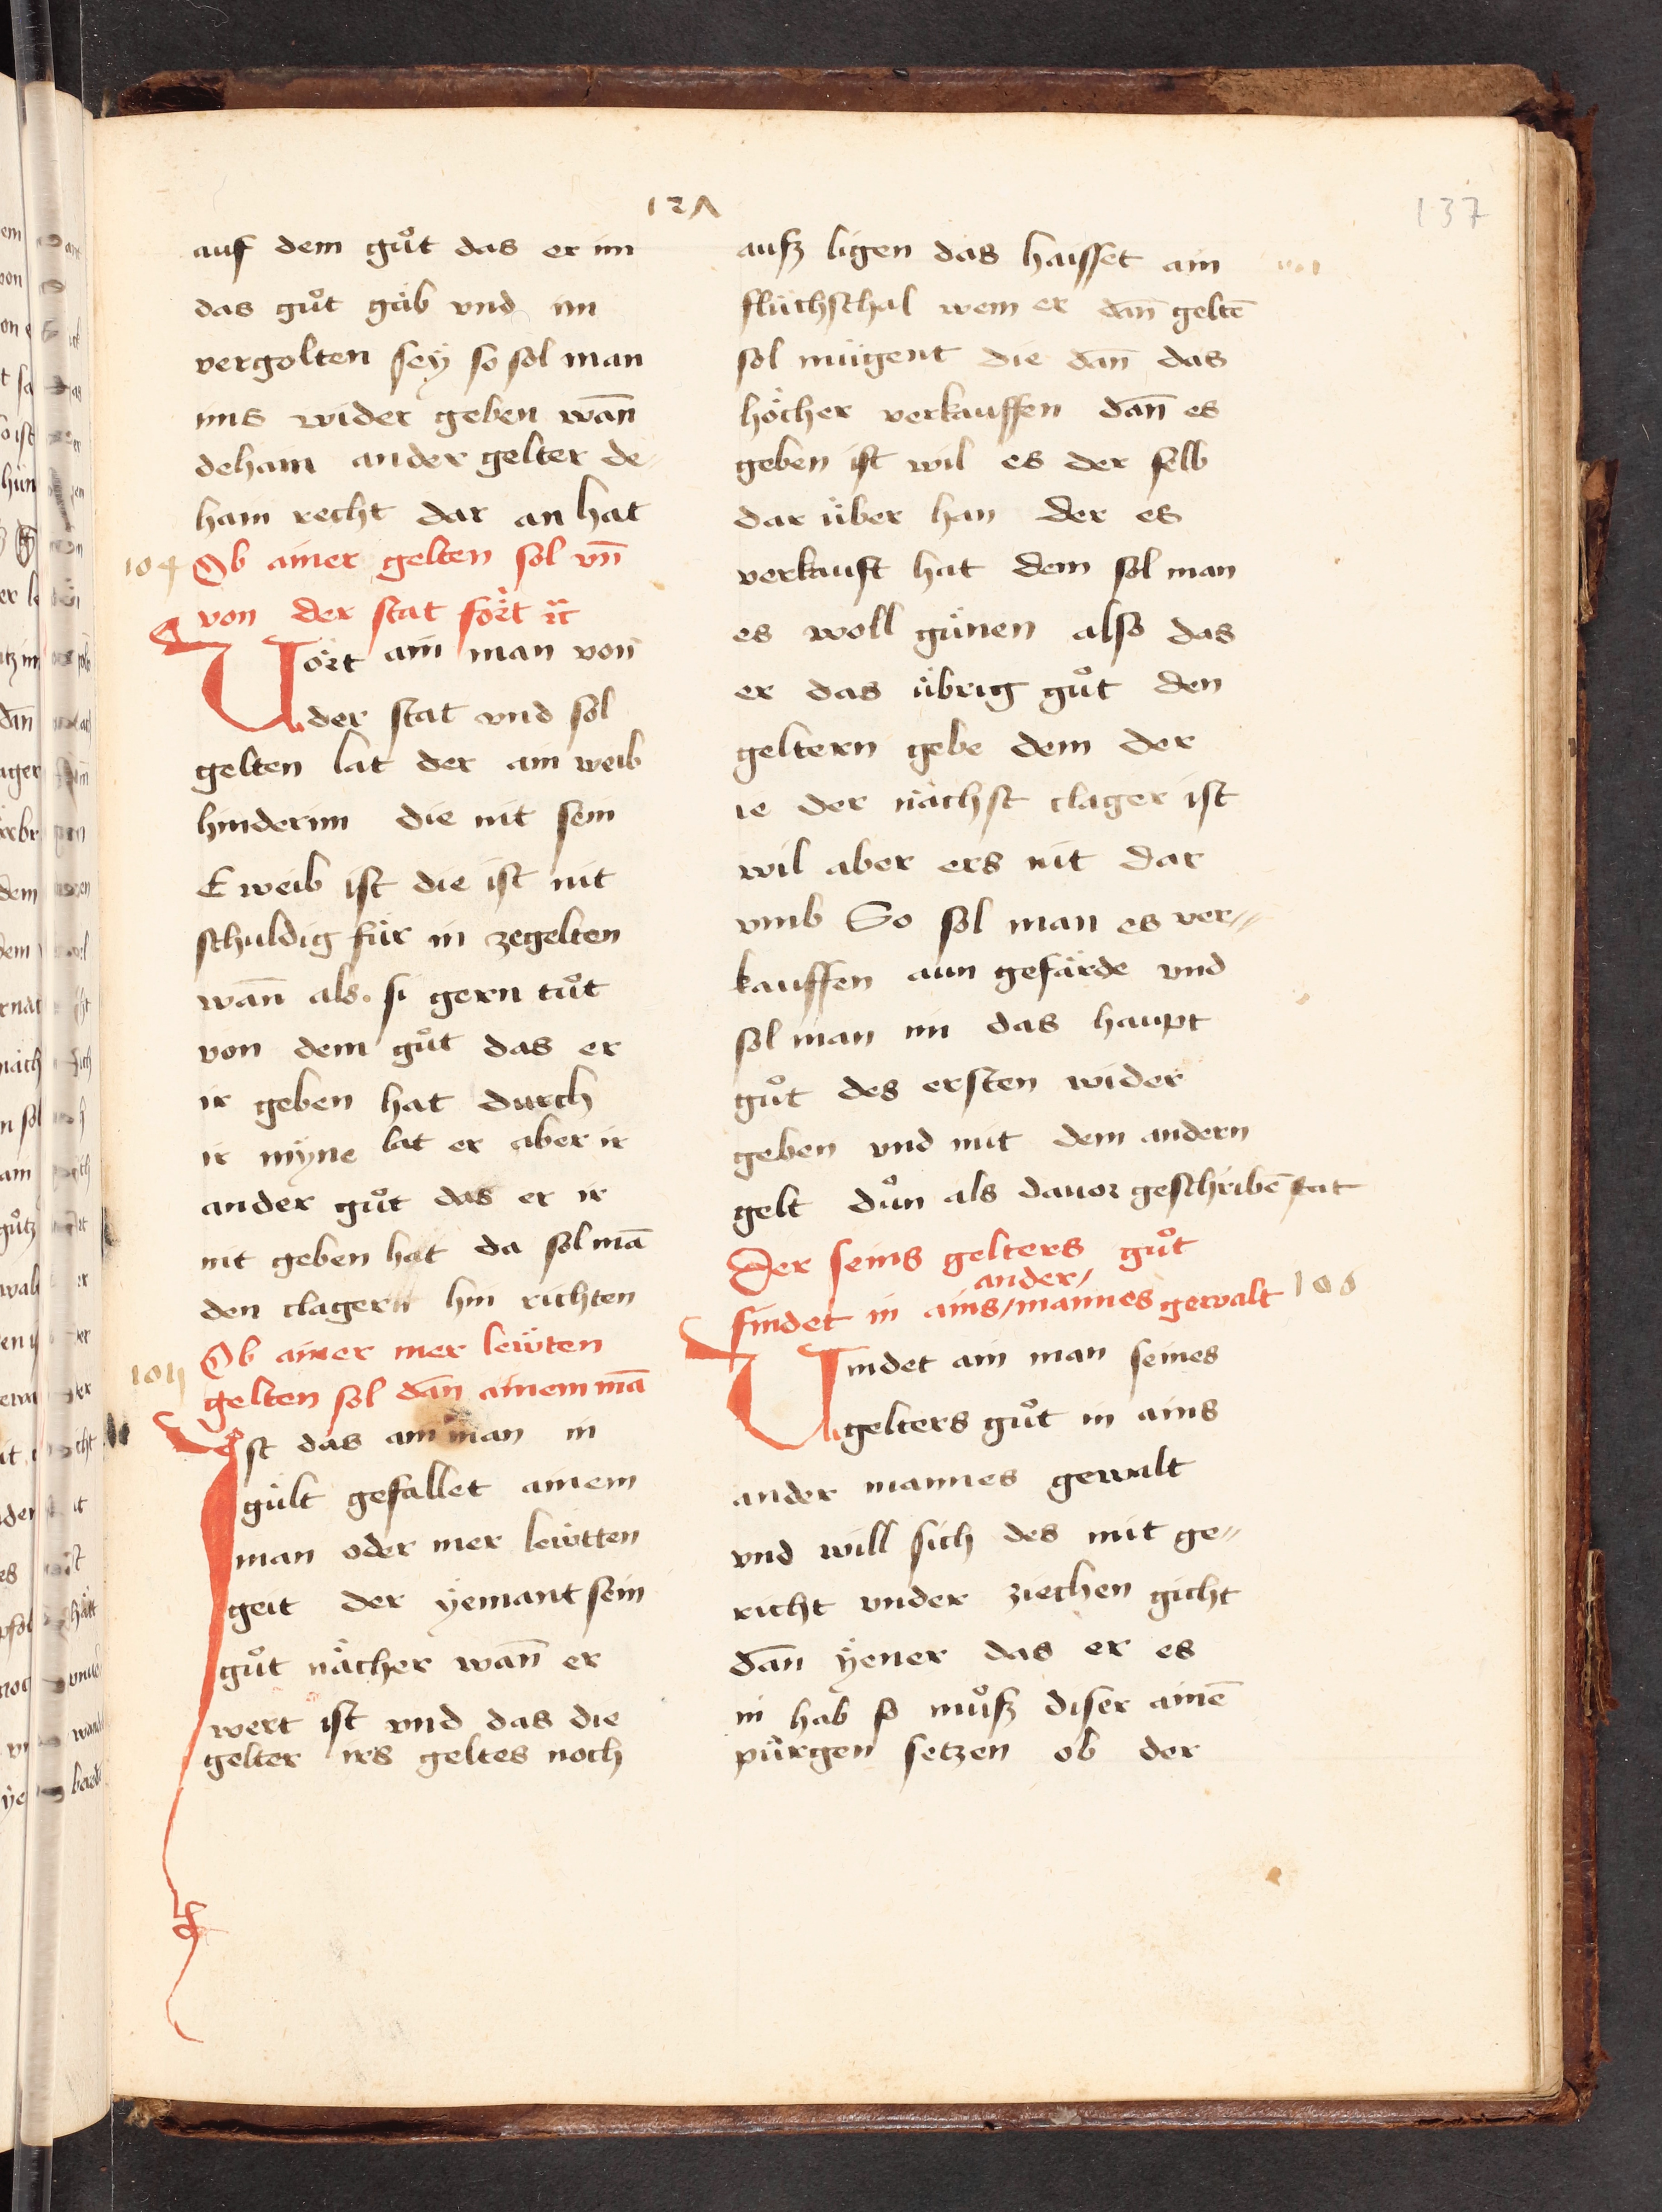 127
137
auf dem guͦt das er im
das guͦt gäb vnd im
vergolten seÿ so sol man
ims wider geben wan̄
dehain ander gelter de
hain recht dar an hat
104 Ob ainer gelten sol vn̄
von der stat fört ꝛc̈
Uört ain man von
der stat vnd sol
gelten lat der ain weib
hinder im die nit sein
E weib ist die ist nit
schuldig für in zegelten
wan̄ als. si gern tuͦt
von dem guͦt das er
ir geben hat durch
ir mÿne lat er aber ir
ander guͦt das er ir
nit geben hat da sol mā
den clagern hin richten
Ob ainer mer leẅten
105 gelten sol dan̄ ainem mā
Ist das ain man in
gült gefallet ainem
man oder mer leẅtten
geit der ÿemant sein
guͦt nächer wan̄ er
wert ist vnd das die
gelter irs geltes noch
auß ligen das haisset ain
fluchsthal wem er dan̄ geltē
sol mügent die dan̄ das
höcher verkauffen dan̄ es
geben ist wil es der selb
dar über han der es
verkauft hat dem sol man
es woll günen also das
er das übrig guͦt den
geltern gebe dem der
ie der nächst clager ist
wil aber ers nit dar
vmb So sol man es ver⸗
kauffen aun gefärde vnd
sol man im das haupt
guͦt des ersten wider
geben vnd mit dem andern
gelt duͦn als dauor geschribē stat
Der seins gelters guͦt
ander/
findet in ains/mannes gewalt 106
Uindet ain man seines
gelters guͦt in ains
ander mannes gewalt
vnd will sich des mit ge⸗
richt vnder ziechen gicht
dan̄ ÿener das er es
in hab so muͦß diser ainē
pürgen setzen ob der